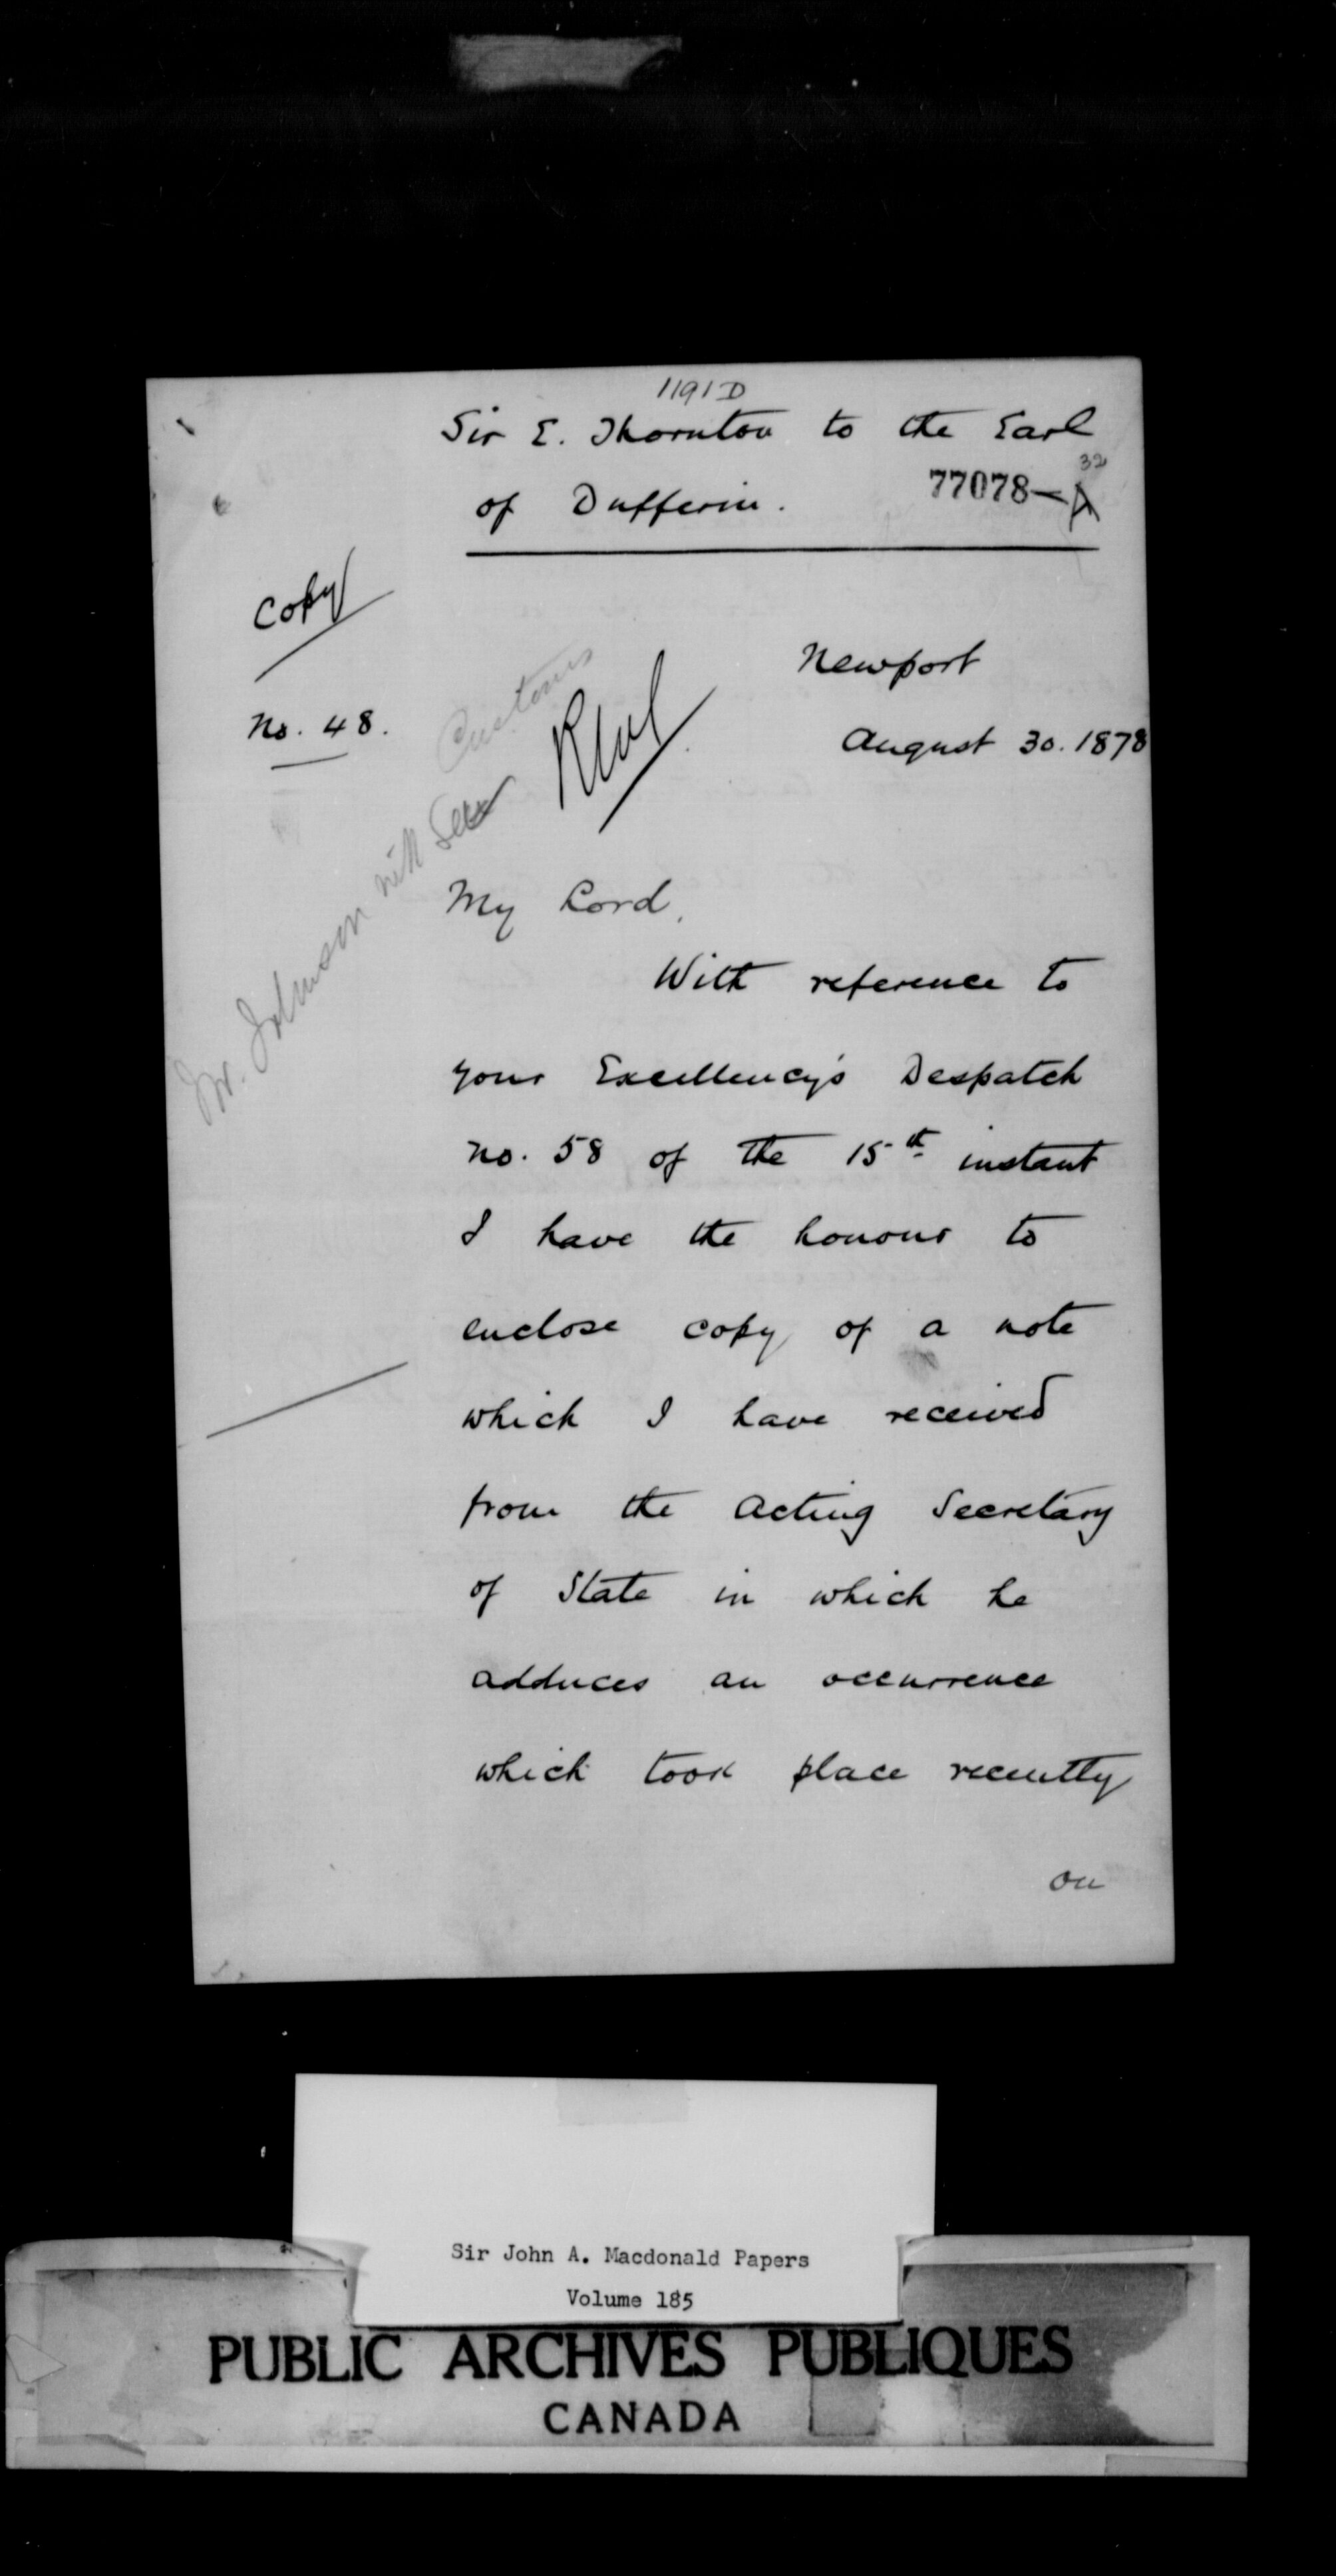 1191D
Sir E. Thornton to the Earl
32
77078-A
of Dufferin.
Copy
Newport
No. 48.
Customs
August 30. 1878
Mr. Johnson will see
My Lord,
With reference to
your Excellency's Despatch
No. 58 of the 15th instant
I have the honour to
enclose copy of a note
which I have received
from the Acting Secretary
of State in which he
adduces an occurrence
which took place recently
on
Sir John A. Macdonald Papers
Volume 185
PUBLIC ARCHIVES PUBLIQUES
CANADA